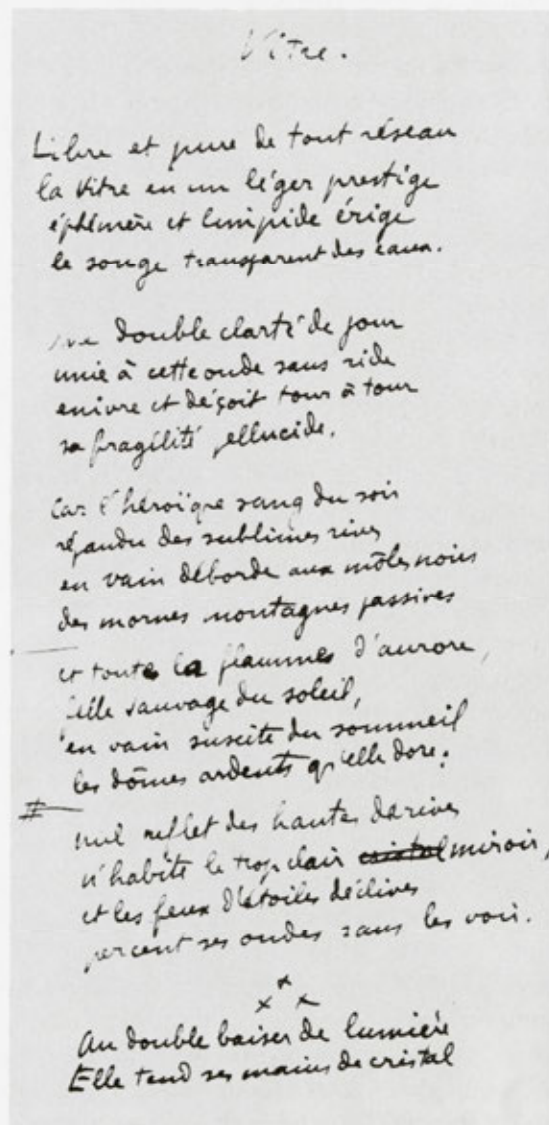 Vitre.
Libre et pure de tout réseau
la vitre en un léger prestige
éphémère et limpide érige
le songe transparent des eaux.
double clarté de jour
unie à cette onde sans ride
enivre et déçoit tour à tour
sa fragilité pellucide.
Car l'héroïque sang du soir
répandu des sublimes rives
en vain déborde aux môles noirs
des mornes montagnes passives
et toute la flammes d'aurore,
fille sauvage du soleil,
en vain suscite du sommeil
les dômes ardents qu'elle dore;
nul reflet des hautes dérives
n'habite le trop clair cristal miroir,
et les feux d'étoiles déclives
percent ses ondes sans les voir.
x x x
Au double baiser de lumière
Elle tend ses mains de cristal